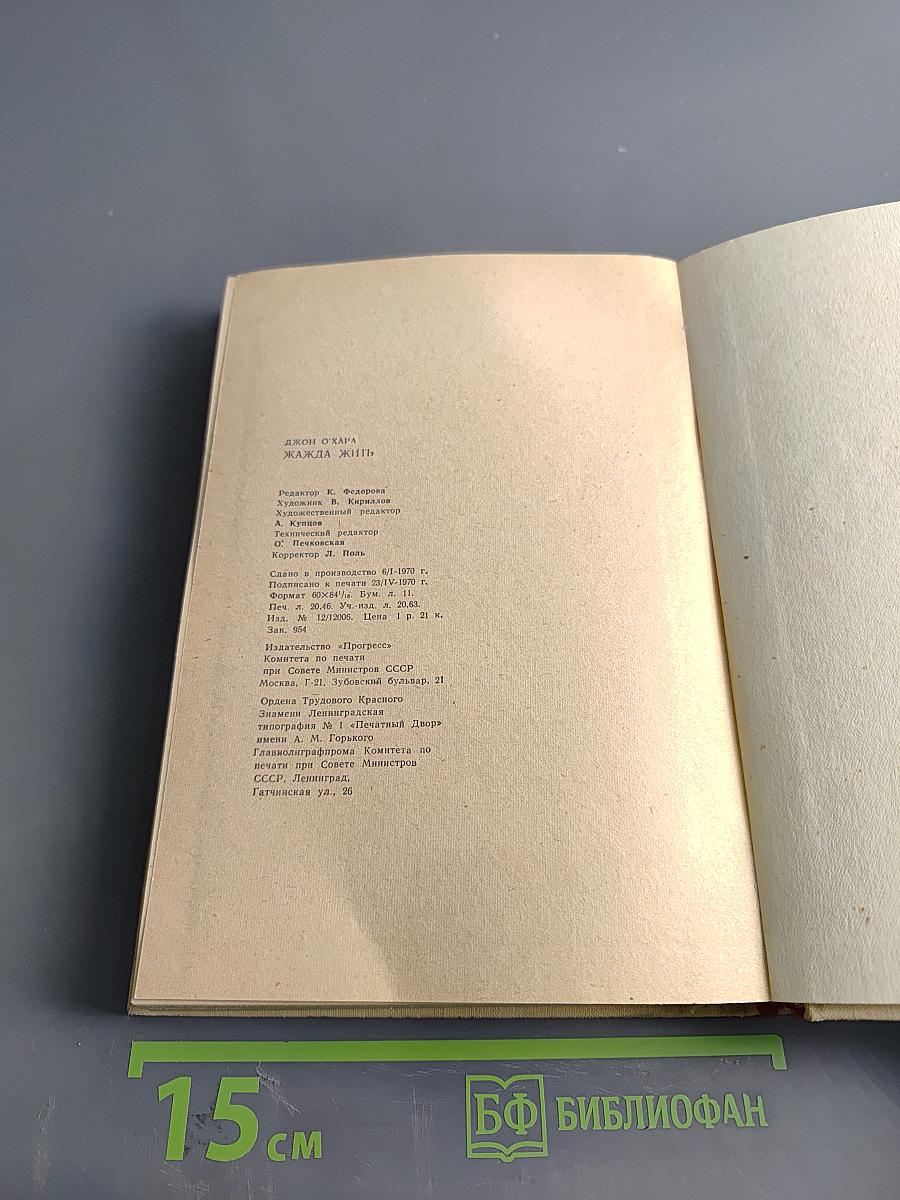 ДЖОН О'ХАРА
ЖАЖДА ЖИТЬ
Редактор К. Федорова
Художник В. Кириллов
Художественный редактор
А. Купцов
Технический редактор
О. Печковская
Корректор Л. Поль
Сдано в производство 6/I-1970 г.
Подписано к печати 23/IV-1970 г.
Формат 60×84¹/₁₆. Бум. л. 11.
Печ. л. 20,46. Уч.-изд. л. 20,63.
Изд. № 12/12006. Цена 1 р. 21 к.
Зак. 954
Издательство «Прогресс»
Комитета по печати
при Совете Министров СССР
Москва, Г-21, Зубовский бульвар, 21
Ордена Трудового Красного
Знамени Ленинградская
типография № 1 «Печатный Двор»
имени А. М. Горького
Главполиграфпрома Комитета по
печати при Совете Министров
СССР, Ленинград,
Гатчинская ул., 26
15 см
БФ БИБЛИОФАН